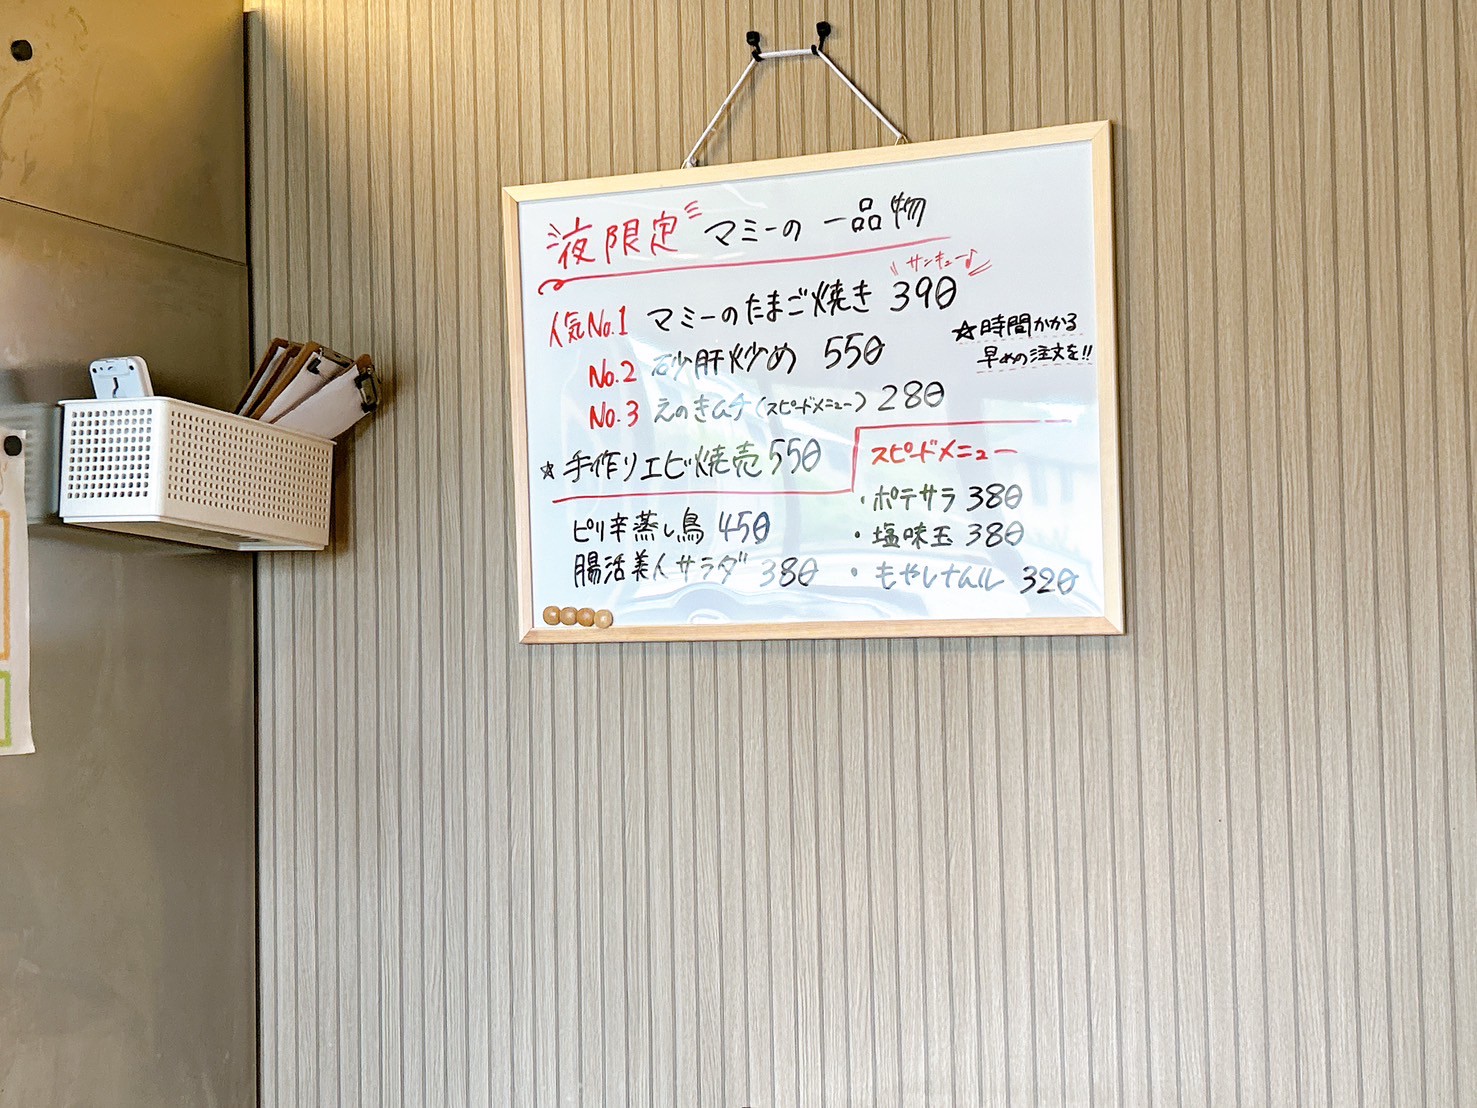 夜限定 マミーの一品物
サンキュー♪
人気No.1 マミーのたまご焼き 390
☆時間かかる
早めの注文を!!
No.2 砂肝炒め 550
No.3 えのきムチ(スピードメニュー) 280
☆手作りエビ焼売 550
ピリ辛蒸し鳥 450
腸活美人サラダ 380
スピードメニュー
・ポテサラ 380
・塩味玉 380
・もやしナムル 320